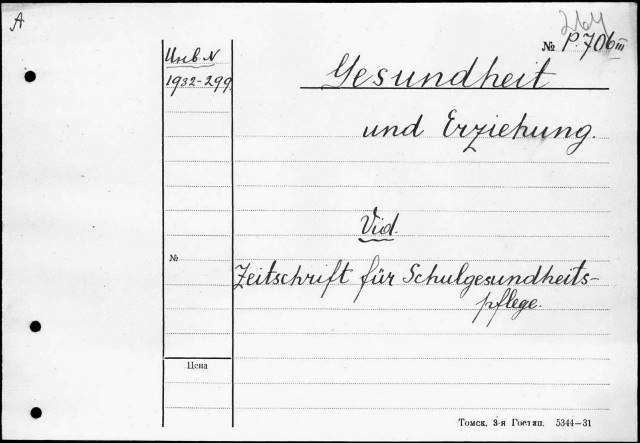 A
264
№ P.706 III
Инв. N
1932-299.
Gesundheit
und Erziehung.
Vid.
№
Zeitschrift für Schulgesundheits-
pflege.
Цена
Томск, 3-я Гостип. 5344—31